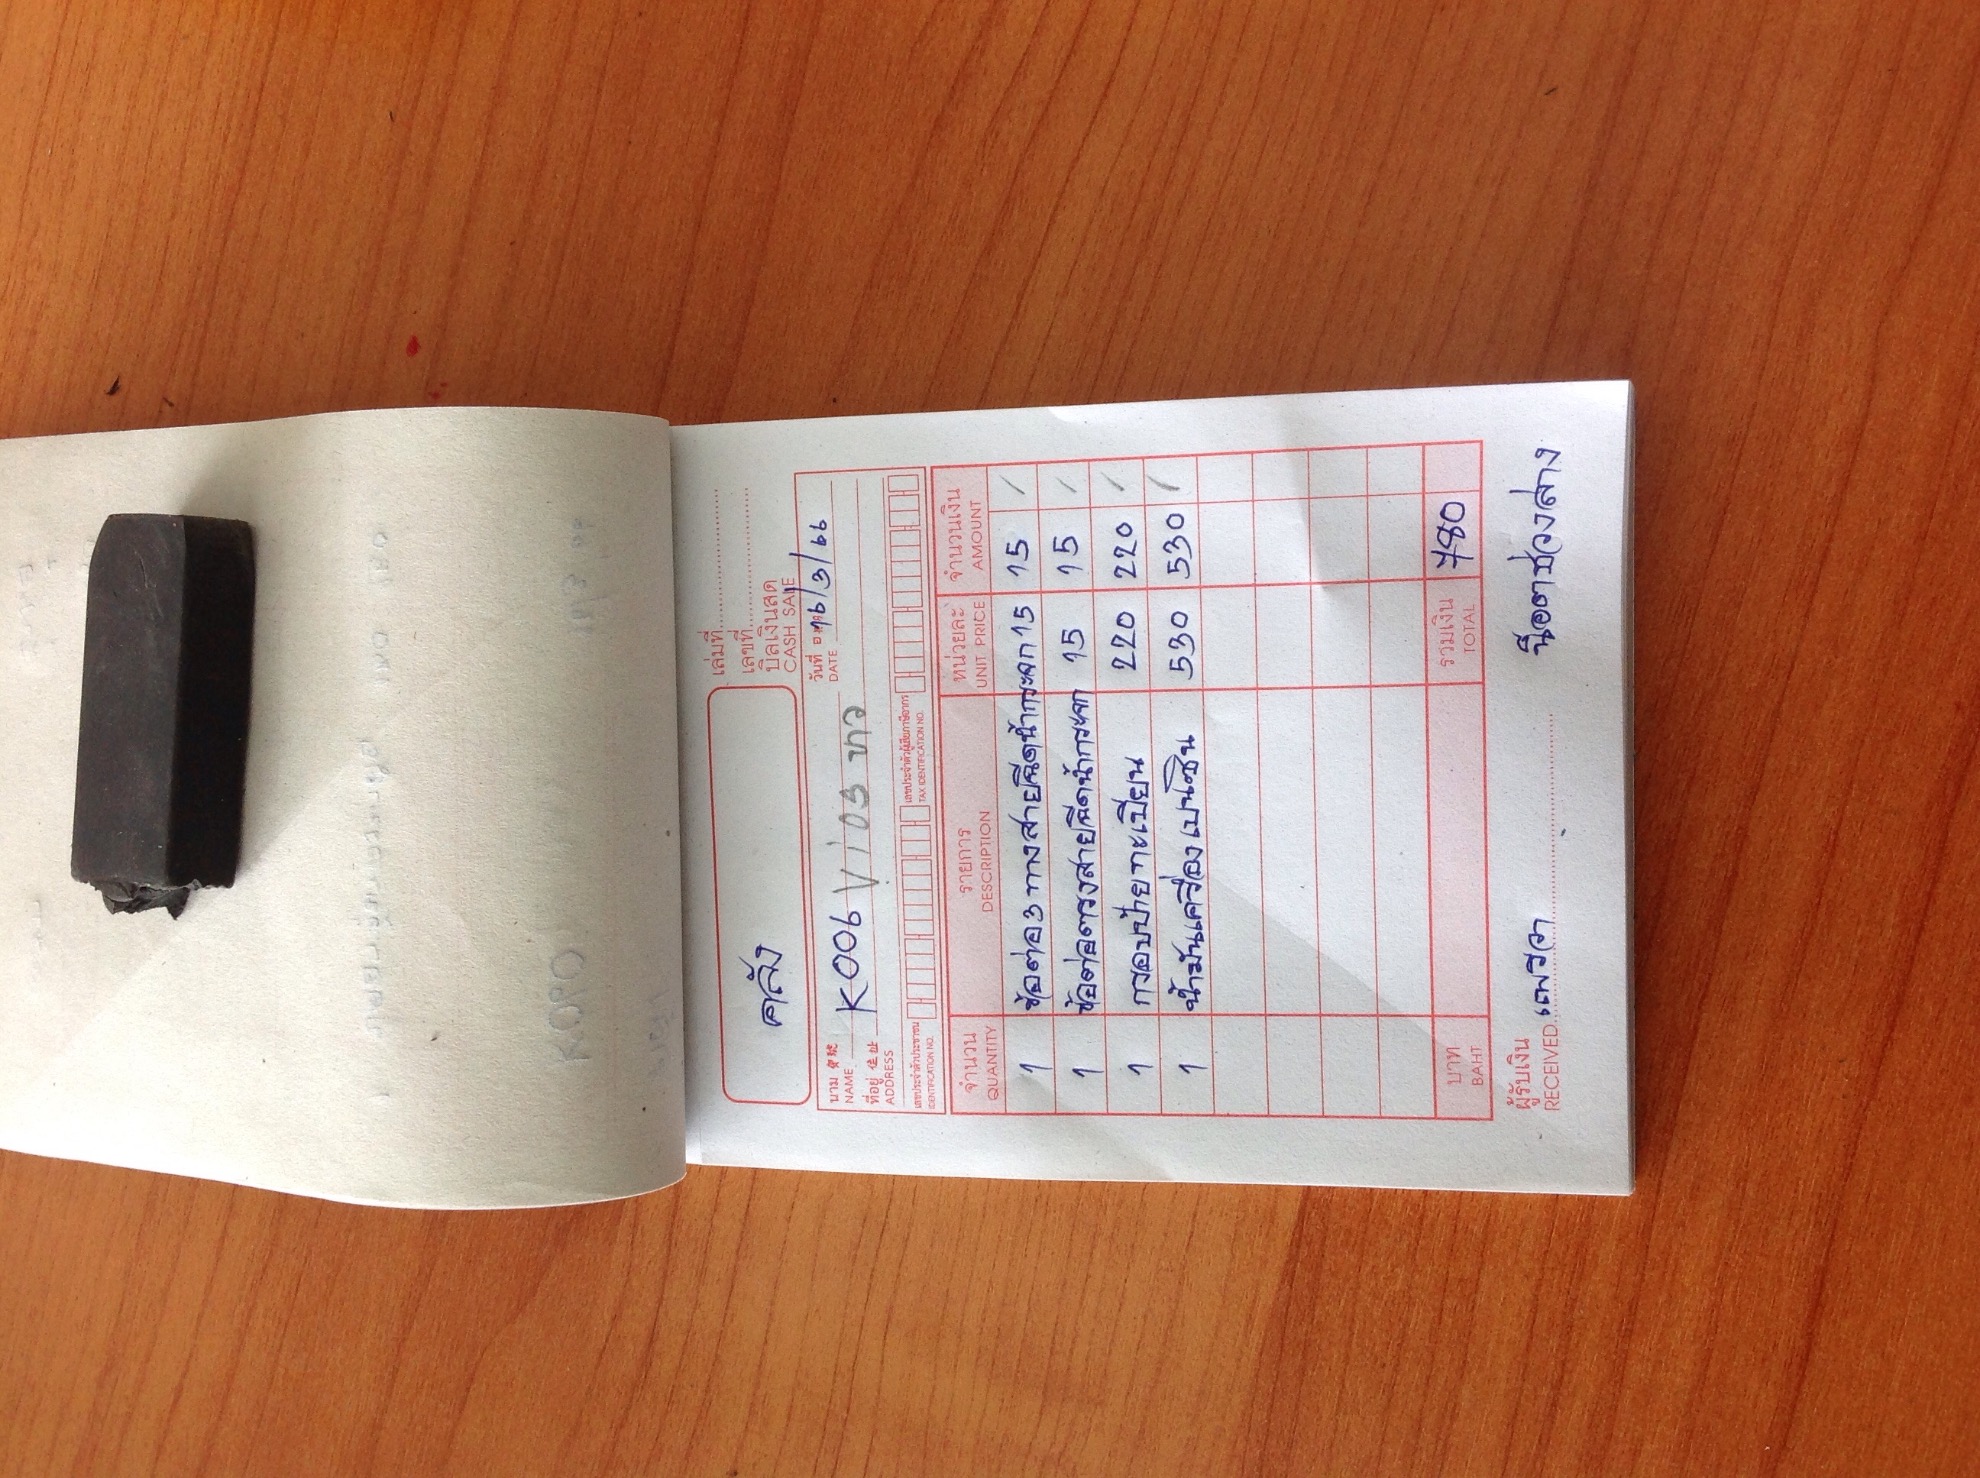 เล่มที่
เลขที่
บิลเงินสด
CASH SALE
คลัง
วันที่ 16/3/66
DATE
นาม K006 Vios ขาว
NAME
ที่อยู่
ADDRESS
เลขประจำตัวประชาชน เลขประจำตัวผู้เสียภาษีอากร
IDENTIFICATION NO. TAX IDENTIFICATION NO.
จำนวน รายการ หน่วยละ จำนวนเงิน
QUANTITY DESCRIPTION UNIT PRICE AMOUNT
1 ข้อต่อ 3 ทางสายฉีดน้ำกระจก 15 15 /
1 ข้อต่อตรงสายฉีดน้ำกระจก 15 15 /
1 กรอบป้ายทะเบียน 220 220 /
1 น้ำมันเครื่องเบนซิน 530 530 /
บาท รวมเงิน 780
BAHT TOTAL
ผู้รับเงิน
RECEIVED แพรวา น๊อตช่วงล่าง
K090